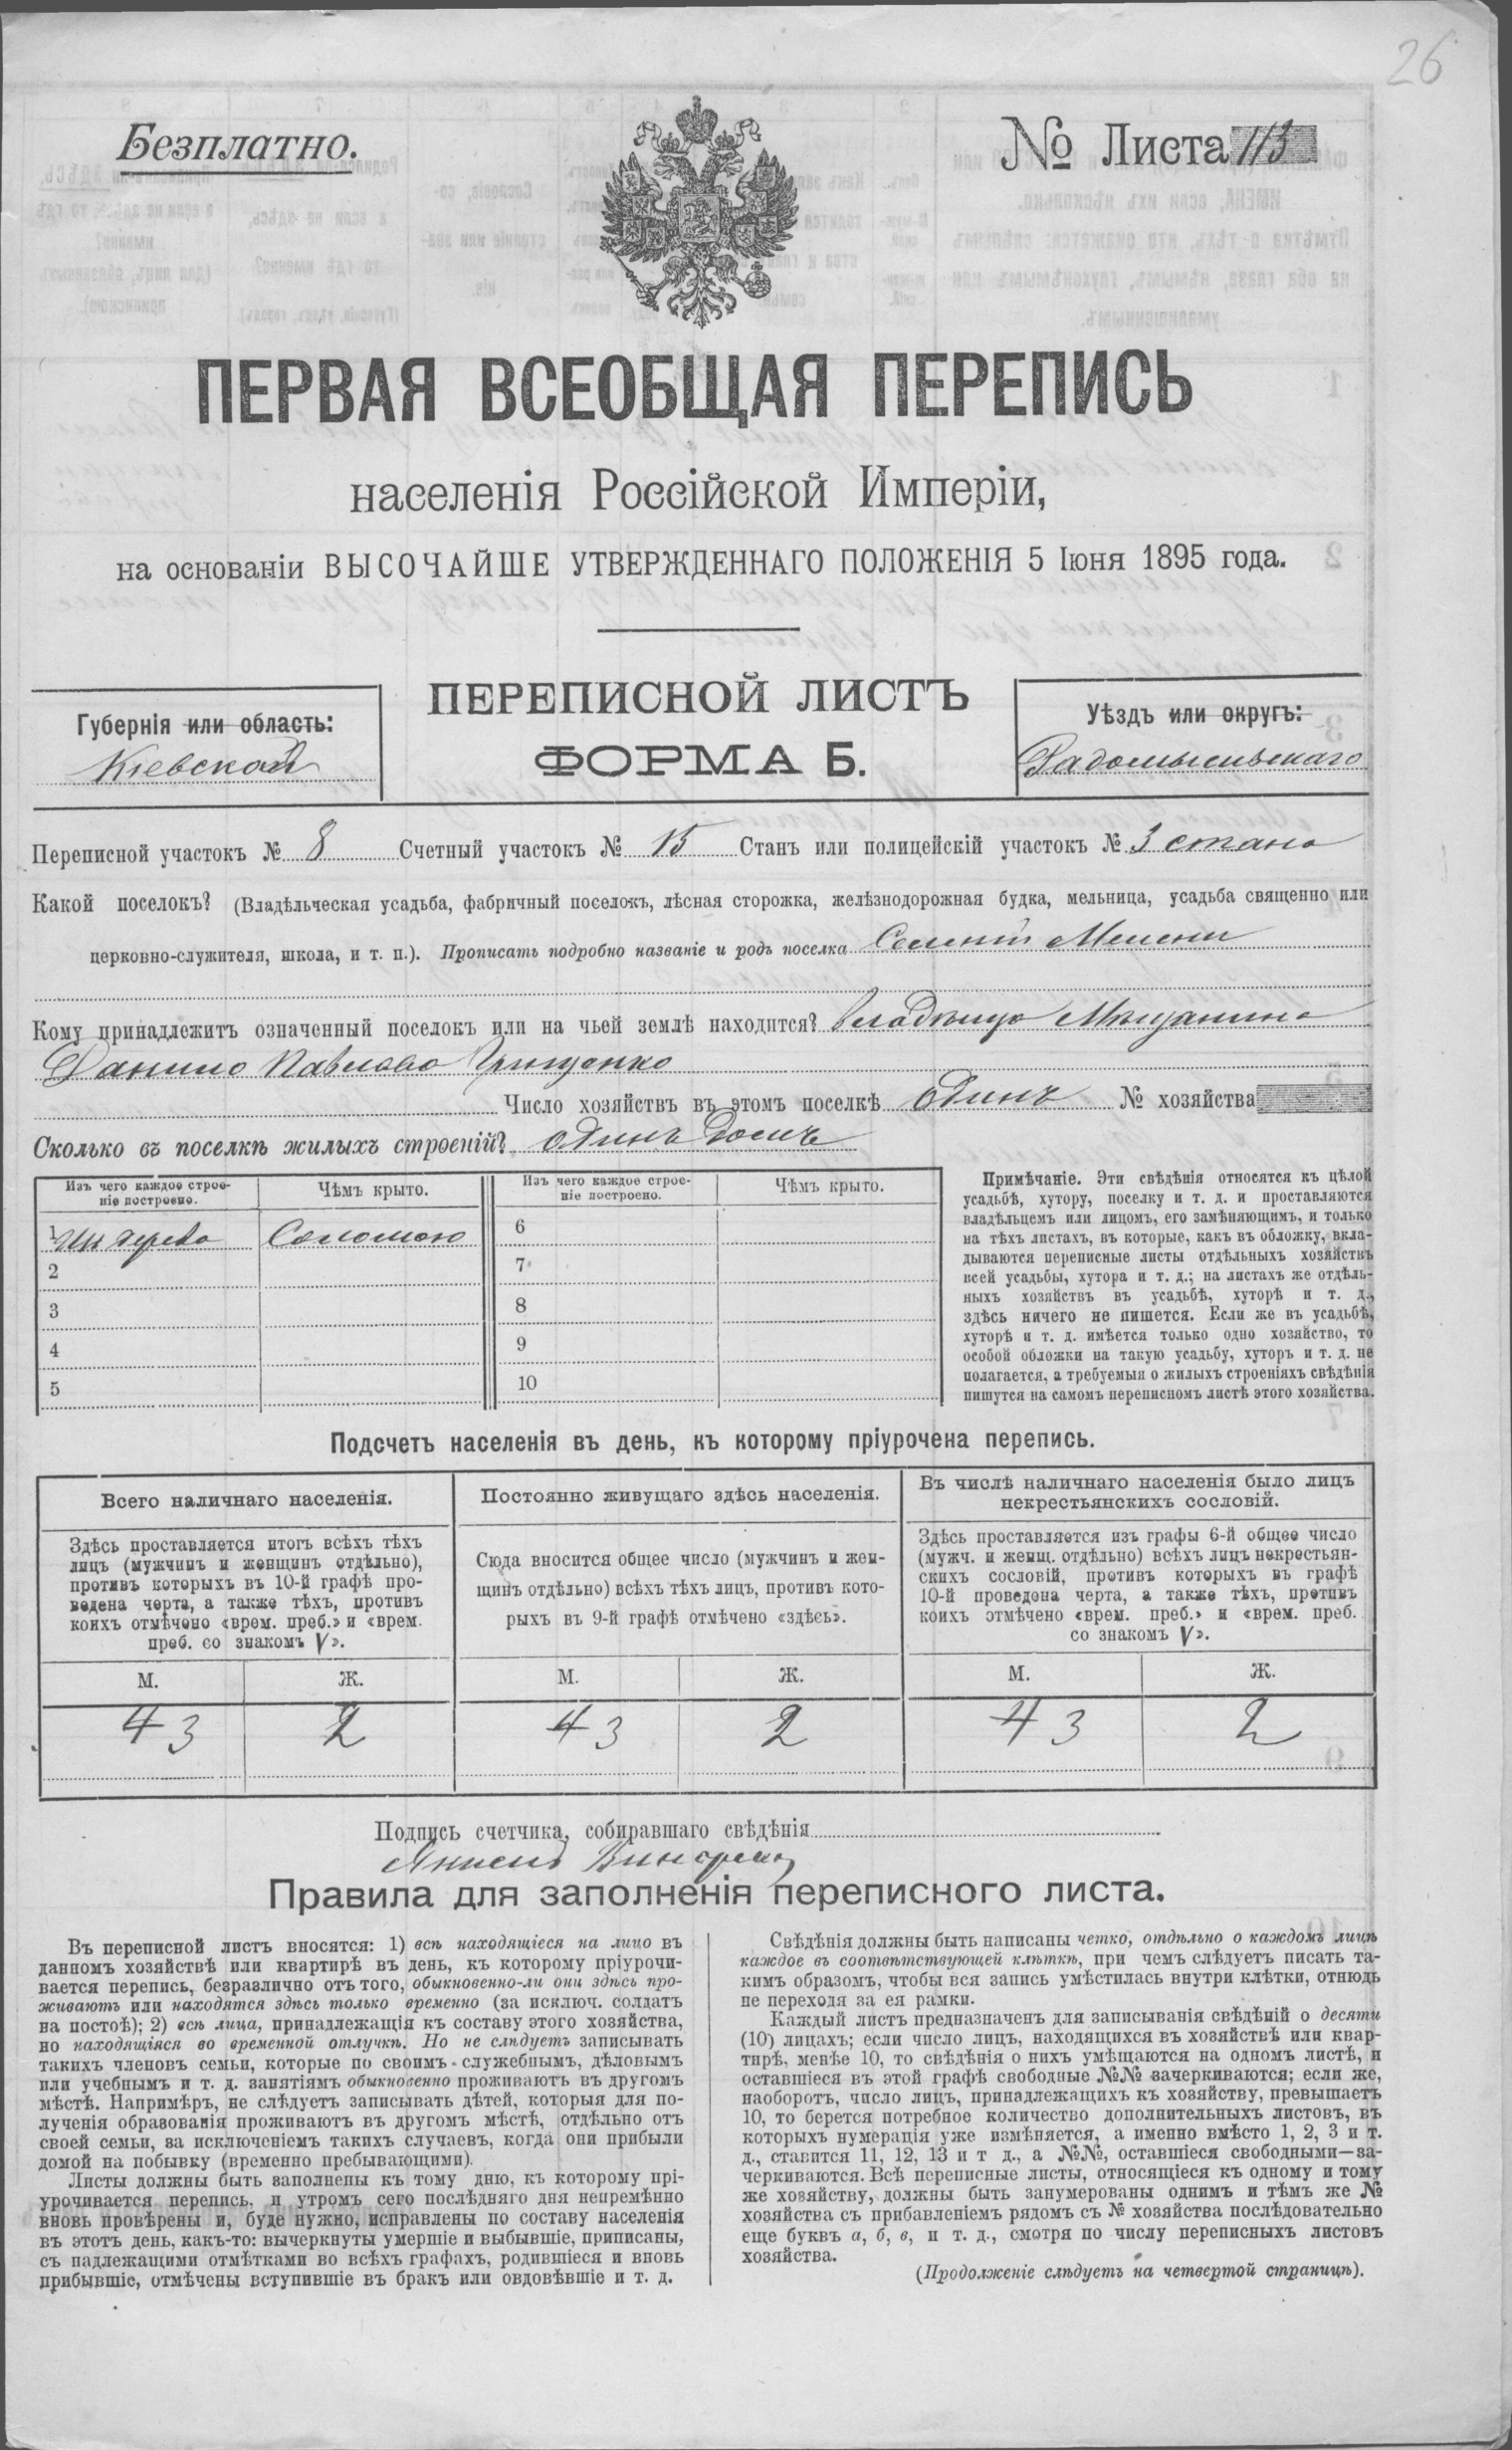 26
Безплатно.
№ Листа 113
ПЕРВАЯ ВСЕОБЩАЯ ПЕРЕПИСЬ
населенія Россійской Имперіи,
на основаніи ВЫСОЧАЙШЕ УТВЕРЖДЕННАГО ПОЛОЖЕНІЯ 5 Іюня 1895 года.
ПЕРЕПИСНОЙ ЛИСТЪ
ФОРМА Б.
Губернія или область:
Кіевской
Уѣздъ или округъ:
Радомысльскаго
Переписной участокъ № 8 Счетный участокъ № 15 Станъ или полицейскій участокъ № 3 стана
Какой поселокъ? (Владѣльческая усадьба, фабричный поселокъ, лѣсная сторожка, желѣзнодорожная будка, мельница, усадьба священно или
церковно-служителя, школа, и т. п.). Прописать подробно названіе и родъ поселка Мелени
Кому принадлежитъ означенный поселокъ или на чьей землѣ находится? Мѣщанина
Данило Павлова Грищенко
Число хозяйствъ въ этомъ поселкѣ одинъ № хозяйства
Сколько въ поселкѣ жилыхъ строеній? одинъ домъ
Изъ чего каждое строе-
ніе построено.
Чѣмъ крыто.
Изъ чего каждое строе-
ніе построено.
Чѣмъ крыто.
1 дерева Соломою 6
2 7
3 8
4 9
5 10
Примѣчаніе. Эти свѣдѣнія относятся къ цѣлой
усадьбѣ, хутору, поселку и т. д. и проставляются
владѣльцемъ или лицомъ, его замѣняющимъ, и только
на тѣхъ листахъ, въ которые, какъ въ обложку, вкла-
дываются переписные листы отдѣльныхъ хозяйствъ
всей усадьбы, хутора и т. д.; на листахъ же отдѣль-
ныхъ хозяйствъ въ усадьбѣ, хуторѣ и т. д.,
здѣсь ничего не пишется. Если же въ усадьбѣ,
хуторѣ и т. д. имѣется только одно хозяйство, то
особой обложки на такую усадьбу, хуторъ и т. д. не
полагается, а требуемыя о жилыхъ строеніяхъ свѣдѣнія
пишутся на самомъ переписномъ листѣ этого хозяйства.
Подсчетъ населенія въ день, къ которому пріурочена перепись.
Всего наличнаго населенія.
Здѣсь проставляется итогъ всѣхъ тѣхъ
лицъ (мужчинъ и женщинъ отдѣльно),
противъ которыхъ въ 10-й графѣ про-
ведена черта, а также тѣхъ, противъ
коихъ отмѣчено «врем. преб.» и «врем.
преб. со знакомъ V».
Постоянно живущаго здѣсь населенія.
Сюда вносится общее число (мужчинъ и жен-
щинъ отдѣльно) всѣхъ тѣхъ лицъ, противъ кото-
рыхъ въ 9-й графѣ отмѣчено «здѣсь».
Въ числѣ наличнаго населенія было лицъ
некрестьянскихъ сословій.
Здѣсь проставляется изъ графы 6-й общее число
(мужч. и женщ. отдѣльно) всѣхъ лицъ некрестьян-
скихъ сословій, противъ которыхъ въ графѣ
10-й проведена черта, а также тѣхъ, противъ
коихъ отмѣчено «врем. преб.» и «врем. преб.
со знакомъ V».
М. Ж. М. Ж. М. Ж.
4 3 2 4 3 2 4 3 2
Подпись счетчика, собиравшаго свѣдѣнія
Правила для заполненія переписного листа.
Въ переписной листъ вносятся: 1) всѣ находящіеся на лицо въ
данномъ хозяйствѣ или квартирѣ въ день, къ которому пріурочи-
вается перепись, безразлично отъ того, обыкновенно-ли они здѣсь про-
живаютъ или находятся здѣсь только временно (за исключ. солдатъ
на постоѣ); 2) всѣ лица, принадлежащія къ составу этого хозяйства,
но находящіяся во временной отлучкѣ. Но не слѣдуетъ записывать
такихъ членовъ семьи, которые по своимъ служебнымъ, дѣловымъ
или учебнымъ и т. д. занятіямъ обыкновенно проживаютъ въ другомъ
мѣстѣ. Напримѣръ, не слѣдуетъ записывать дѣтей, которыя для по-
лученія образованія проживаютъ въ другомъ мѣстѣ, отдѣльно отъ
своей семьи, за исключеніемъ такихъ случаевъ, когда они прибыли
домой на побывку (временно пребывающими).
Листы должны быть заполнены къ тому дню, къ которому прі-
урочивается перепись, и утромъ сего послѣдняго дня непремѣнно
вновь провѣрены и, буде нужно, исправлены по составу населенія
въ этотъ день, какъ-то: вычеркнуты умершіе и выбывшіе, приписаны,
съ надлежащими отмѣтками во всѣхъ графахъ, родившіеся и вновь
прибывшіе, отмѣчены вступившіе въ бракъ или овдовѣвшіе и т. д.
Свѣдѣнія должны быть написаны четко, отдѣльно о каждомъ лицѣ
каждое въ соотвѣтствующей клѣткѣ, при чемъ слѣдуетъ писать та-
кимъ образомъ, чтобы вся запись умѣстилась внутри клѣтки, отнюдь
не переходя за ея рамки.
Каждый листъ предназначенъ для записыванія свѣдѣній о десяти
(10) лицахъ; если число лицъ, находящихся въ хозяйствѣ или квар-
тирѣ, менѣе 10, то свѣдѣнія о нихъ умѣщаются на одномъ листѣ, и
оставшіеся въ этой графѣ свободные №№ зачеркиваются; если же,
наоборотъ, число лицъ, принадлежащихъ къ хозяйству, превышаетъ
10, то берется потребное количество дополнительныхъ листовъ, въ
которыхъ нумерація уже измѣняется, а именно вмѣсто 1, 2, 3 и т.
д., ставится 11, 12, 13 и т д., а №№, оставшіеся свободными—за-
черкиваются. Всѣ переписные листы, относящіеся къ одному и тому
же хозяйству, должны быть занумерованы однимъ и тѣмъ же №
хозяйства съ прибавленіемъ рядомъ съ № хозяйства послѣдовательно
еще буквъ а, б, в, и т. д., смотря по числу переписныхъ листовъ
хозяйства.
(Продолженіе слѣдуетъ на четвертой страницѣ).